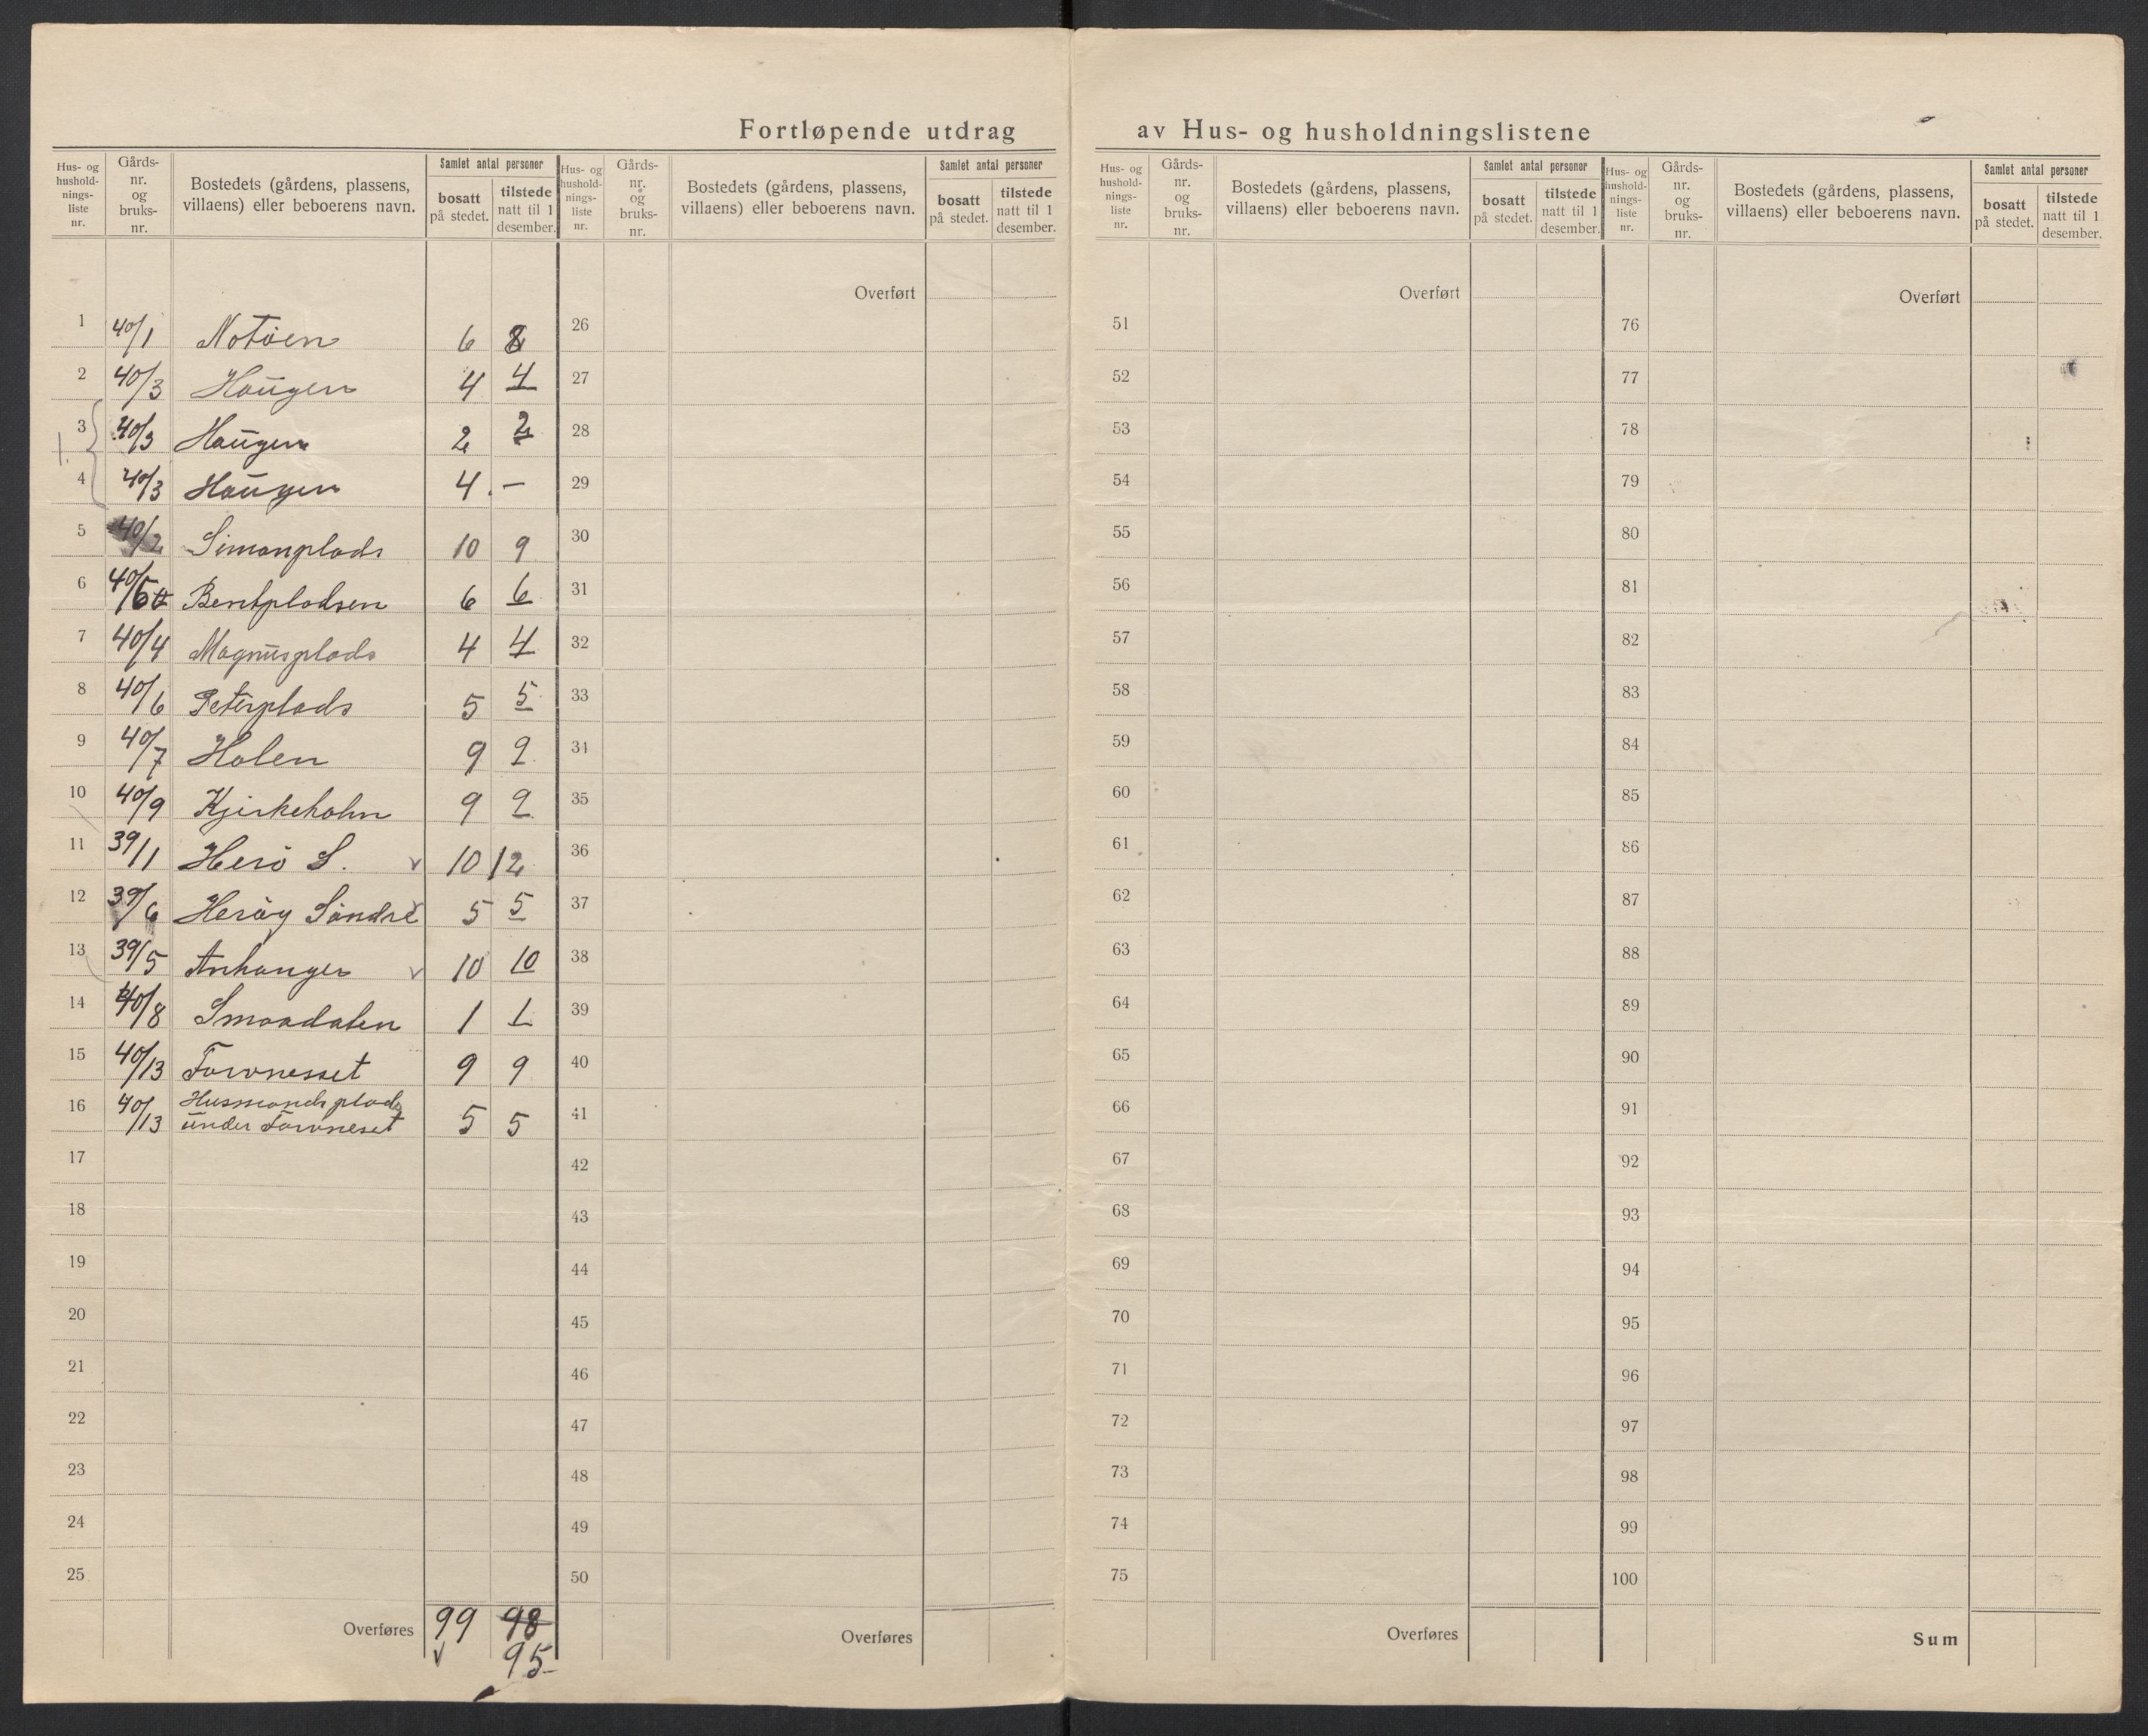 Fortløpende utdrag av Hus- og husholdningslistene
Hus- og husholdnings-liste nr. Gårds-nr. og bruks-nr. Bostedets (gårdens, plassens, villaens) eller beboerens navn. Samlet antal personer bosatt på stedet. tilstede natt til 1 desember.
1 40/1 Notöen 6 8
2 40/3 Haugen 4 4
3 40/3 Haugen 2 2
4 40/3 Haugen 4 . –
5 40/2 Simonplads 10 9
6 40/5 Bentpladsen 6 6
7 40/4 Magnusplads 4 4
8 40/6 Peterplads 5 5
9 40/7 Holen 9 9
10 40/9 Kjirkeholm 9 9
11 39/1 Herö S. v 10 12
12 39/6 Heröy Söndre 5 5
13 39/5 Anhanger v 10 10
14 40/8 Smaadalen 1 1
15 40/13 Torvnesset 9 9
16 40/13 Husmandsplads
under Torvneset 5 5
17
18
19
20
21
22
23
24
25
Overføres 99 98
v 95
Hus- og husholdnings-liste nr. Gårds-nr. og bruks-nr. Bostedets (gårdens, plassens, villaens) eller beboerens navn. Samlet antal personer bosatt på stedet. tilstede natt til 1 desember.
Overført
26
27
28
29
30
31
32
33
34
35
36
37
38
39
40
41
42
43
44
45
46
47
48
49
50
Overføres
Hus- og hushold-nings-liste nr. Gårds-nr. og bruks-nr. Bostedets (gårdens, plassens, villaens) eller beboerens navn. Samlet antal personer bosatt på stedet. tilstede natt til 1 desember.
Overført
51
52
53
54
55
56
57
58
59
60
61
62
63
64
65
66
67
68
69
70
71
72
73
74
75
Overføres
Hus- og hushold-nings-liste nr. Gårds-nr. og bruks-nr. Bostedets (gårdens, plassens, villaens) eller beboerens navn. Samlet antal personer bosatt på stedet. tilstede natt til 1 desember.
Overført
76
77
78
79
80
81
82
83
84
85
86
87
88
89
90
91
92
93
94
95
96
97
98
99
100
Sum